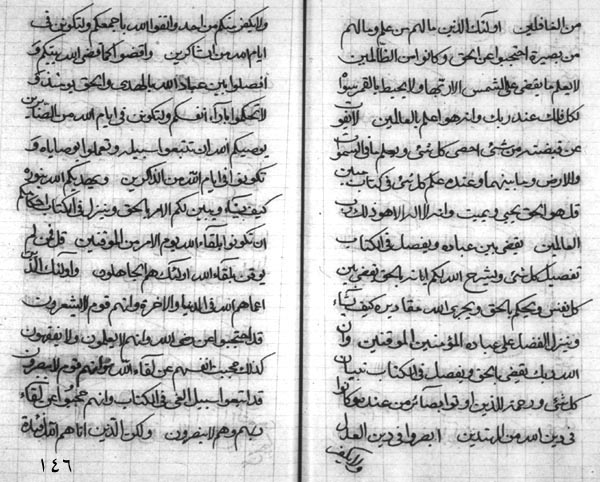 من الغافلين اولئك الذين مالهم من علم ومالهم
من بصيرة احتجبوا عن الحق وكانوا من الظالمين
لا يعلم ما يقضى على الشمس الا ربها ولا يحيط بالقمر سواه
لكل فلك عند ربك وانه هو اعلم بالعالمين لا يفوت
عن قبضته من شئ احصى كل شئ ويعلم ما فى السموات
والارض وما بينهما وعنده علم كل شئ فى كتاب مبين
قل هو الحق يحيى ويميت وانه لا اله الا هو رب
العالمين يقضى بين عباده ويفصل فى الكتاب
تفصيل كل شئ ويشرح الله لكم اياته بالحق يقضى بين
كل نفس ويحكم بالحق ويجرى الله مقادير كيف يشاء
وينزل الفضل على عباده المؤمنين الموقنين وان
الله ربك يقضى بالحق ويفصل فى الكتاب تبيان
كل شئ ورحمة للذين اوتوا بصائر من عنده وكانوا
فى دين الله من المهتدين ابصروا فى دين العدل
ولا يكف
ولا يكفر منكم من احد واتقوا الله باجمعكم ولتكونن فى
ايام الله من الشاكرين واقضوا كما قضى الله بينكم و
افصلوا بين عباد الله بالهدى والحق يومئذ و
لا تحكموا باراء انفسكم ولتكونن فى ايام الله من الصابرين
يوصيكم الله ان تتبعوا سبيله وتعملوا بوصاياه و
تكونن فى ايام الله من الذاكرين ويهديكم الله بنوره
كيف يشاء ويبين لكم الامر بالحق وينزل فى الكتاب احكامكم
ان تكونوا بلقاء الله يوم الامر من الموقنين قل فمن لم
يوقن بلقاء الله اولئك هم الجاهلون واولئك الذين
اعماهم الله فى الدنيا والاخرة وانهم قوم لا يشعرون
قد احتجبوا عن رضى الله وانهم لا يعلمون ولا يفقهون
كذلك حجبت انفسهم عن لقاء الله وانهم قوم لا يبصرون
قد اتبعوا سبيل الغى فى الكتاب وانهم حجبوا عن لقاء
ربهم وهم لا يبصرون ولكن الذين اتاهم الله افئدة
١٤٦